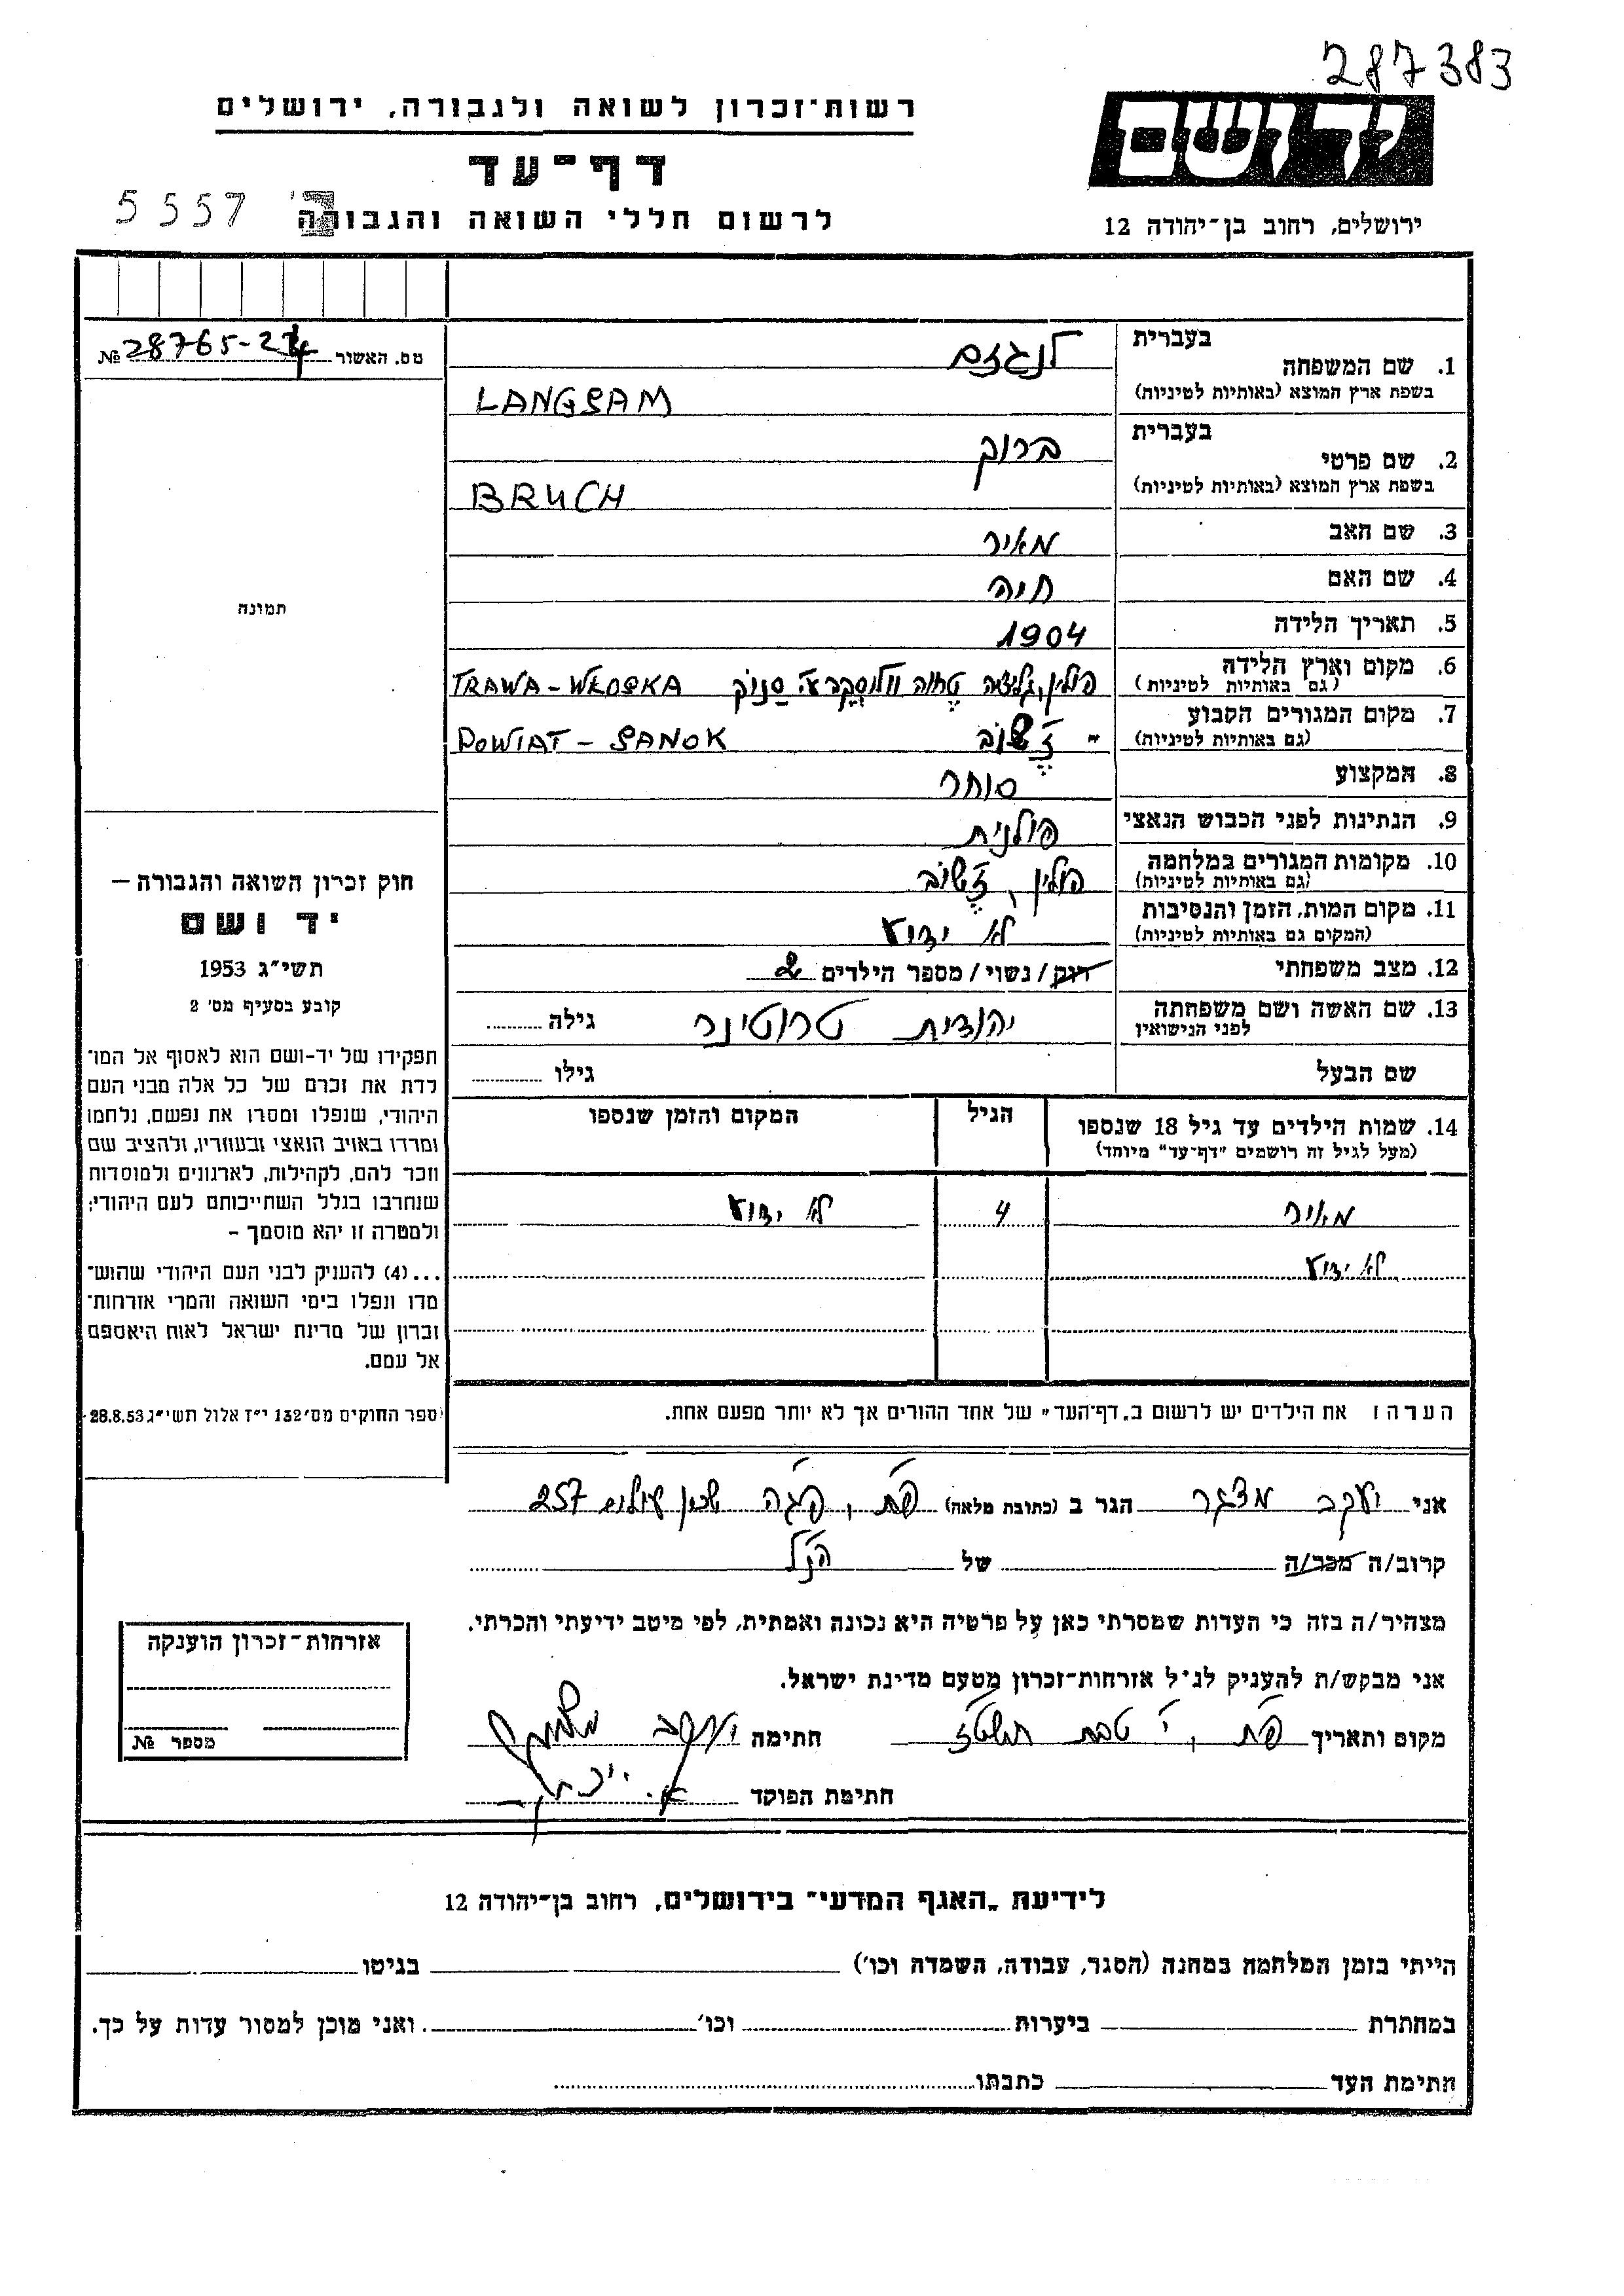 287383
רשות־זכרון לשואה ולגבורה, ירושלים
ידושם
דף־עד
5557
לרשום חללי השואה והגבורה
ירושלים, רחוב בן־יהודה 12
מס. האשור № 28765-274
בעברית
1. שם המשפחה לנגזם
בשפת ארץ המוצא (באותיות לטיניות) LANGSAM
בעברית
2. שם פרטי ברוך
בשפת ארץ המוצא (באותיות לטיניות) BRUCH
3. שם האב מאיר
4. שם האם חיה
5. תאריך הלידה 1904
6. מקום וארץ הלידה פולין, גליציה סנוק TRAWA-WŁOSKA
(גם באותיות לטיניות)
7. מקום המגורים הקבוע " ז'שוב POWIAT-SANOK
(גם באותיות לטיניות)
8. המקצוע סוחר
9. הנתינות לפני הכבוש הנאצי פולנית
10. מקומות המגורים במלחמה פולין, ז'שוב
(גם באותיות לטיניות)
11. מקום המות, הזמן והנסיבות לא ידוע
(המקום גם באותיות לטיניות)
12. מצב משפחתי רוק/נשוי/מספר הילדים 2
13. שם האשה ושם משפחתה יהודית טרוטינר גילה
לפני הנישואין
שם הבעל גילו
14. שמות הילדים עד גיל 18 שנספו הגיל המקום והזמן שנספו
(מעל לגיל זה רושמים "דף־עד" מיוחד)
מאיר 4 לא ידוע
לא ידוע
הערה: את הילדים יש לרשום ב„דף־העד" של אחד ההורים אך לא יותר מפעם אחת.
תמונה
חוק זכרון השואה והגבורה —
יד ושם
תשי״ג 1953
קובע בסעיף מס' 2
תפקידו של יד-ושם הוא לאסוף אל המו־
לדת את זכרם של כל אלה מבני העם
היהודי, שנפלו ומסרו את נפשם, נלחמו
ומרדו באויב הנאצי ובעוזריו, ולהציב שם
וזכר להם, לקהילות, לארגונים ולמוסדות
שנחרבו בגלל השתייכותם לעם היהודי;
ולמטרה זו יהא מוסמך –
...(4) להעניק לבני העם היהודי שהוש־
מדו ונפלו בימי השואה והמרי אזרחות־
זכרון של מדינת ישראל לאות היאספם
אל עמם.
ספר החוקים מס׳ 132 י״ז אלול תשי״ג 28.8.53
אני יעקב מצגר הגר ב (כתובת מלאה) פ"ת, שכון 257
קרוב/ה מכר/ה של הנ"ל
מצהיר/ה בזה כי העדות שמסרתי כאן על פרטיה היא נכונה ואמתית, לפי מיטב ידיעתי והכרתי.
אני מבקש/ת להעניק לנ״ל אזרחות־זכרון מטעם מדינת ישראל.
מקום ותאריך פ"ת, י' טבת תשט"ז חתימה יעקב מצגר
חתימת הפוקד
אזרחות־זכרון הוענקה
מספר №
לידיעת „האגף המדעי" בירושלים, רחוב בן־יהודה 12
הייתי בזמן המלחמה במחנה (הסגר, עבודה, השמדה וכו') בגיטו
במחתרת ביערות וכו' ואני מוכן למסור עדות על כך.
חתימת העד כתבתו